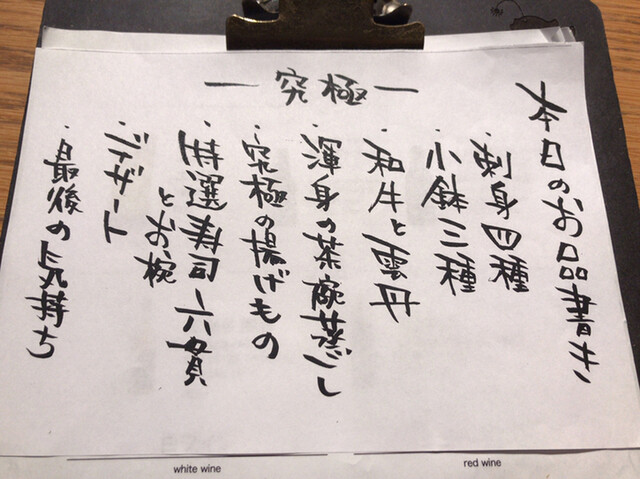 一 究極 一
本日のお品書き
・刺身四種
・小鉢三種
・和牛と雲丹
・渾身の茶碗蒸し
・究極の揚げもの
・特選寿司 六貫
とお椀
・デザート
・最後の気持ち
white wine
red wine